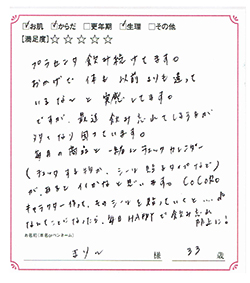 ☑お肌 ☑からだ ☐更年期 ☑生理 ☐その他
【満足度】☆☆☆☆☆
プラセンタ飲み続けてます。
おかげで体も以前よりも違って
いるな〜と実感してます。
ですが、最近飲み忘れてしまう日が
多くなり困っています。
毎月の商品と一緒にチェックカレンダー
(チェックするりか、シール貼るタイプなど)
があるとイイかなと思います。COCORO
キャラクター作って、そのシールを貼っていくと…。み
たいなことになったら、毎日HAPPYで飲み忘れ
防止に!
お名前(本名orペンネーム)
まりん 様 33歳